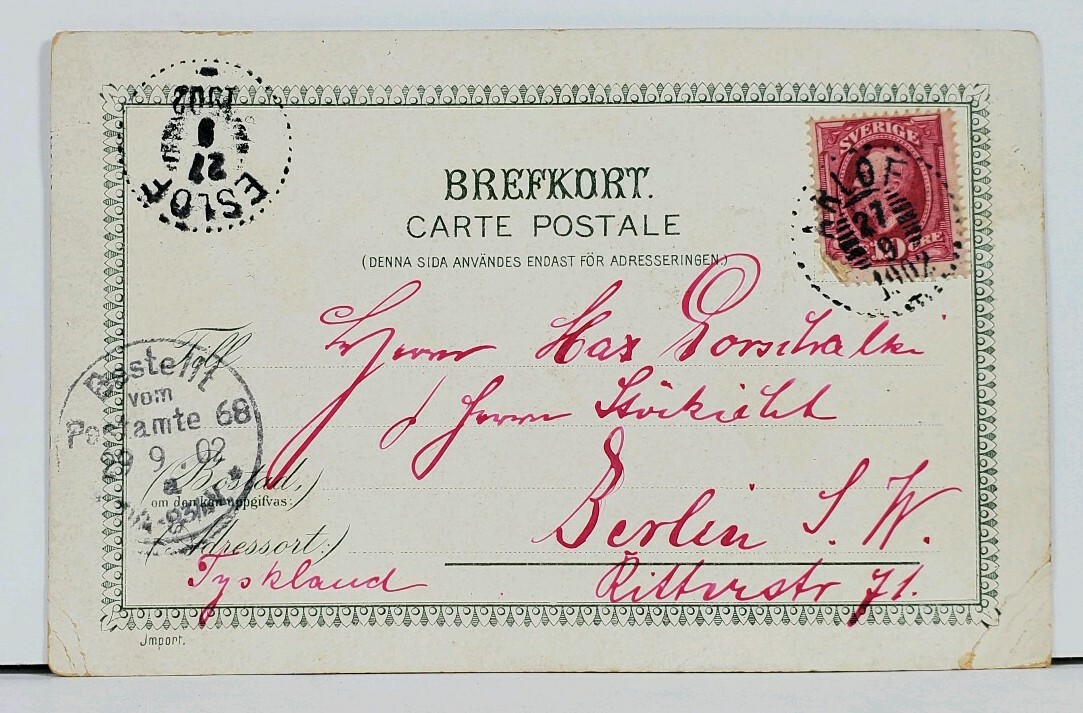 1902
9
27
ESLÖF
SVERIGE
10 ÖRE
ARLÖF
27
9
1902
BREFKORT.
CARTE POSTALE
(DENNA SIDA ANVÄNDES ENDAST FÖR ADRESSERINGEN.)
Till
Herrn Max
Herrn
Bestellt
vom
Postamte 68
9. 02
a
(Bostad,)
om den kan uppgifvas:
Berlin S. W.
(Adressort:)
Tyskland
Ritterstr 71.
Import.